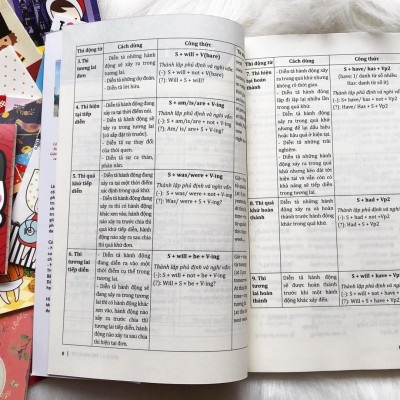 Thì động từ
Cách dùng
Công thức
3. Thì
tương lai
đơn
- Diễn tả những hành
động sẽ xảy ra trong
tương lai.
- Diễn tả những dự đoán.
- Diễn tả lời hứa.
S + will + V(bare)
Thành lập phủ định và nghi vấn:
(-): S + will + not + V(bare)
(?): Will + S + V(bare)?
4. Thì hiện
tại tiếp diễn
- Diễn tả hành động đang
xảy ra tại thời điểm nói.
- Diễn tả hành động sẽ
xảy ra trong tương lai
(có sắp đặt từ trước).
- Diễn tả sự thay đổi
của thói quen.
- Diễn tả sự ca thán,
phàn nàn.
S + am/is/are + V-ing
Thành lập phủ định và nghi vấn:
(-): S + am/is/are + not + V-ing
(?): Am/ is/ are + S + V-ing?
5. Thì quá
khứ tiếp
diễn
- Diễn tả hành động đang
xảy ra tại một thời điểm
xác định trong quá khứ.
- Diễn tả hành động đang
xảy ra thì có hành động
khác xen vào, hành động
nào xảy ra trước chia thì
quá khứ tiếp diễn, hành
động nào xảy ra sau chia
thì quá khứ đơn.
S + was/were + V-ing
Thành lập phủ định và nghi vấn:
(-): S + was/were + not + V-ing
(?): Was/ were + S + V-ing?
6. Thì
tương lai
tiếp diễn
- Diễn tả hành động
đang diễn ra vào một
thời điểm cụ thể trong
tương lai.
- Diễn tả hành động đang
sẽ xảy ra trong tương lai
thì có hành động khác
xen vào, hành động nào
xảy ra trước chia thì
tương lai tiếp diễn, hành
động nào xảy ra sau chia
thì hiện tại đơn.
S + will + be + V-ing
Thành lập phủ định và nghi vấn:
(-): S + will + not + be + V-ing
(?): Will + S + be + V-ing?
8
Thì động từ
Cách dùng
Công thức
7. Thì hiện
tại hoàn
thành
- Diễn tả hành động xảy
ra trong quá khứ nhưng
không rõ thời gian.
- Diễn tả hành động
lặp đi lặp lại nhiều lần
trong quá khứ.
- Diễn tả hành động
xảy ra trong quá khứ
nhưng để lại dấu hiệu
hoặc hậu quả ở hiện tại.
- Diễn tả những trải
nghiệm.
- Diễn tả những hành
động xảy ra trong quá
khứ nhưng kéo dài tới
hiện tại và vẫn còn có
khả năng sẽ tiếp diễn
trong tương lai.
S + have/ has + Vp2
(have: I/ danh từ số nhiều
Has: danh từ số ít)
Thành lập phủ định và nghi vấn:
(-): S + have/ has + not + Vp2
(?): Have/ Has + S + Vp2?
8. Thì quá
khứ hoàn
thành
- Diễn tả những hành
động xảy ra và hoàn
thành trước hành động
khác trong quá khứ.
S + had + Vp2
Thành lập phủ định và nghi vấn:
(-): S + had + not + Vp2
(?): Had + S + Vp2?
9. Thì
tương lai
hoàn thành
- Diễn tả hành động
sẽ được hoàn thành
trước khi một hành
động khác xảy đến.
S + will + have + Vp2
Thành lập phủ định và nghi vấn:
(-): S + will + not + have +
(?): Will + S + have + Vp2?